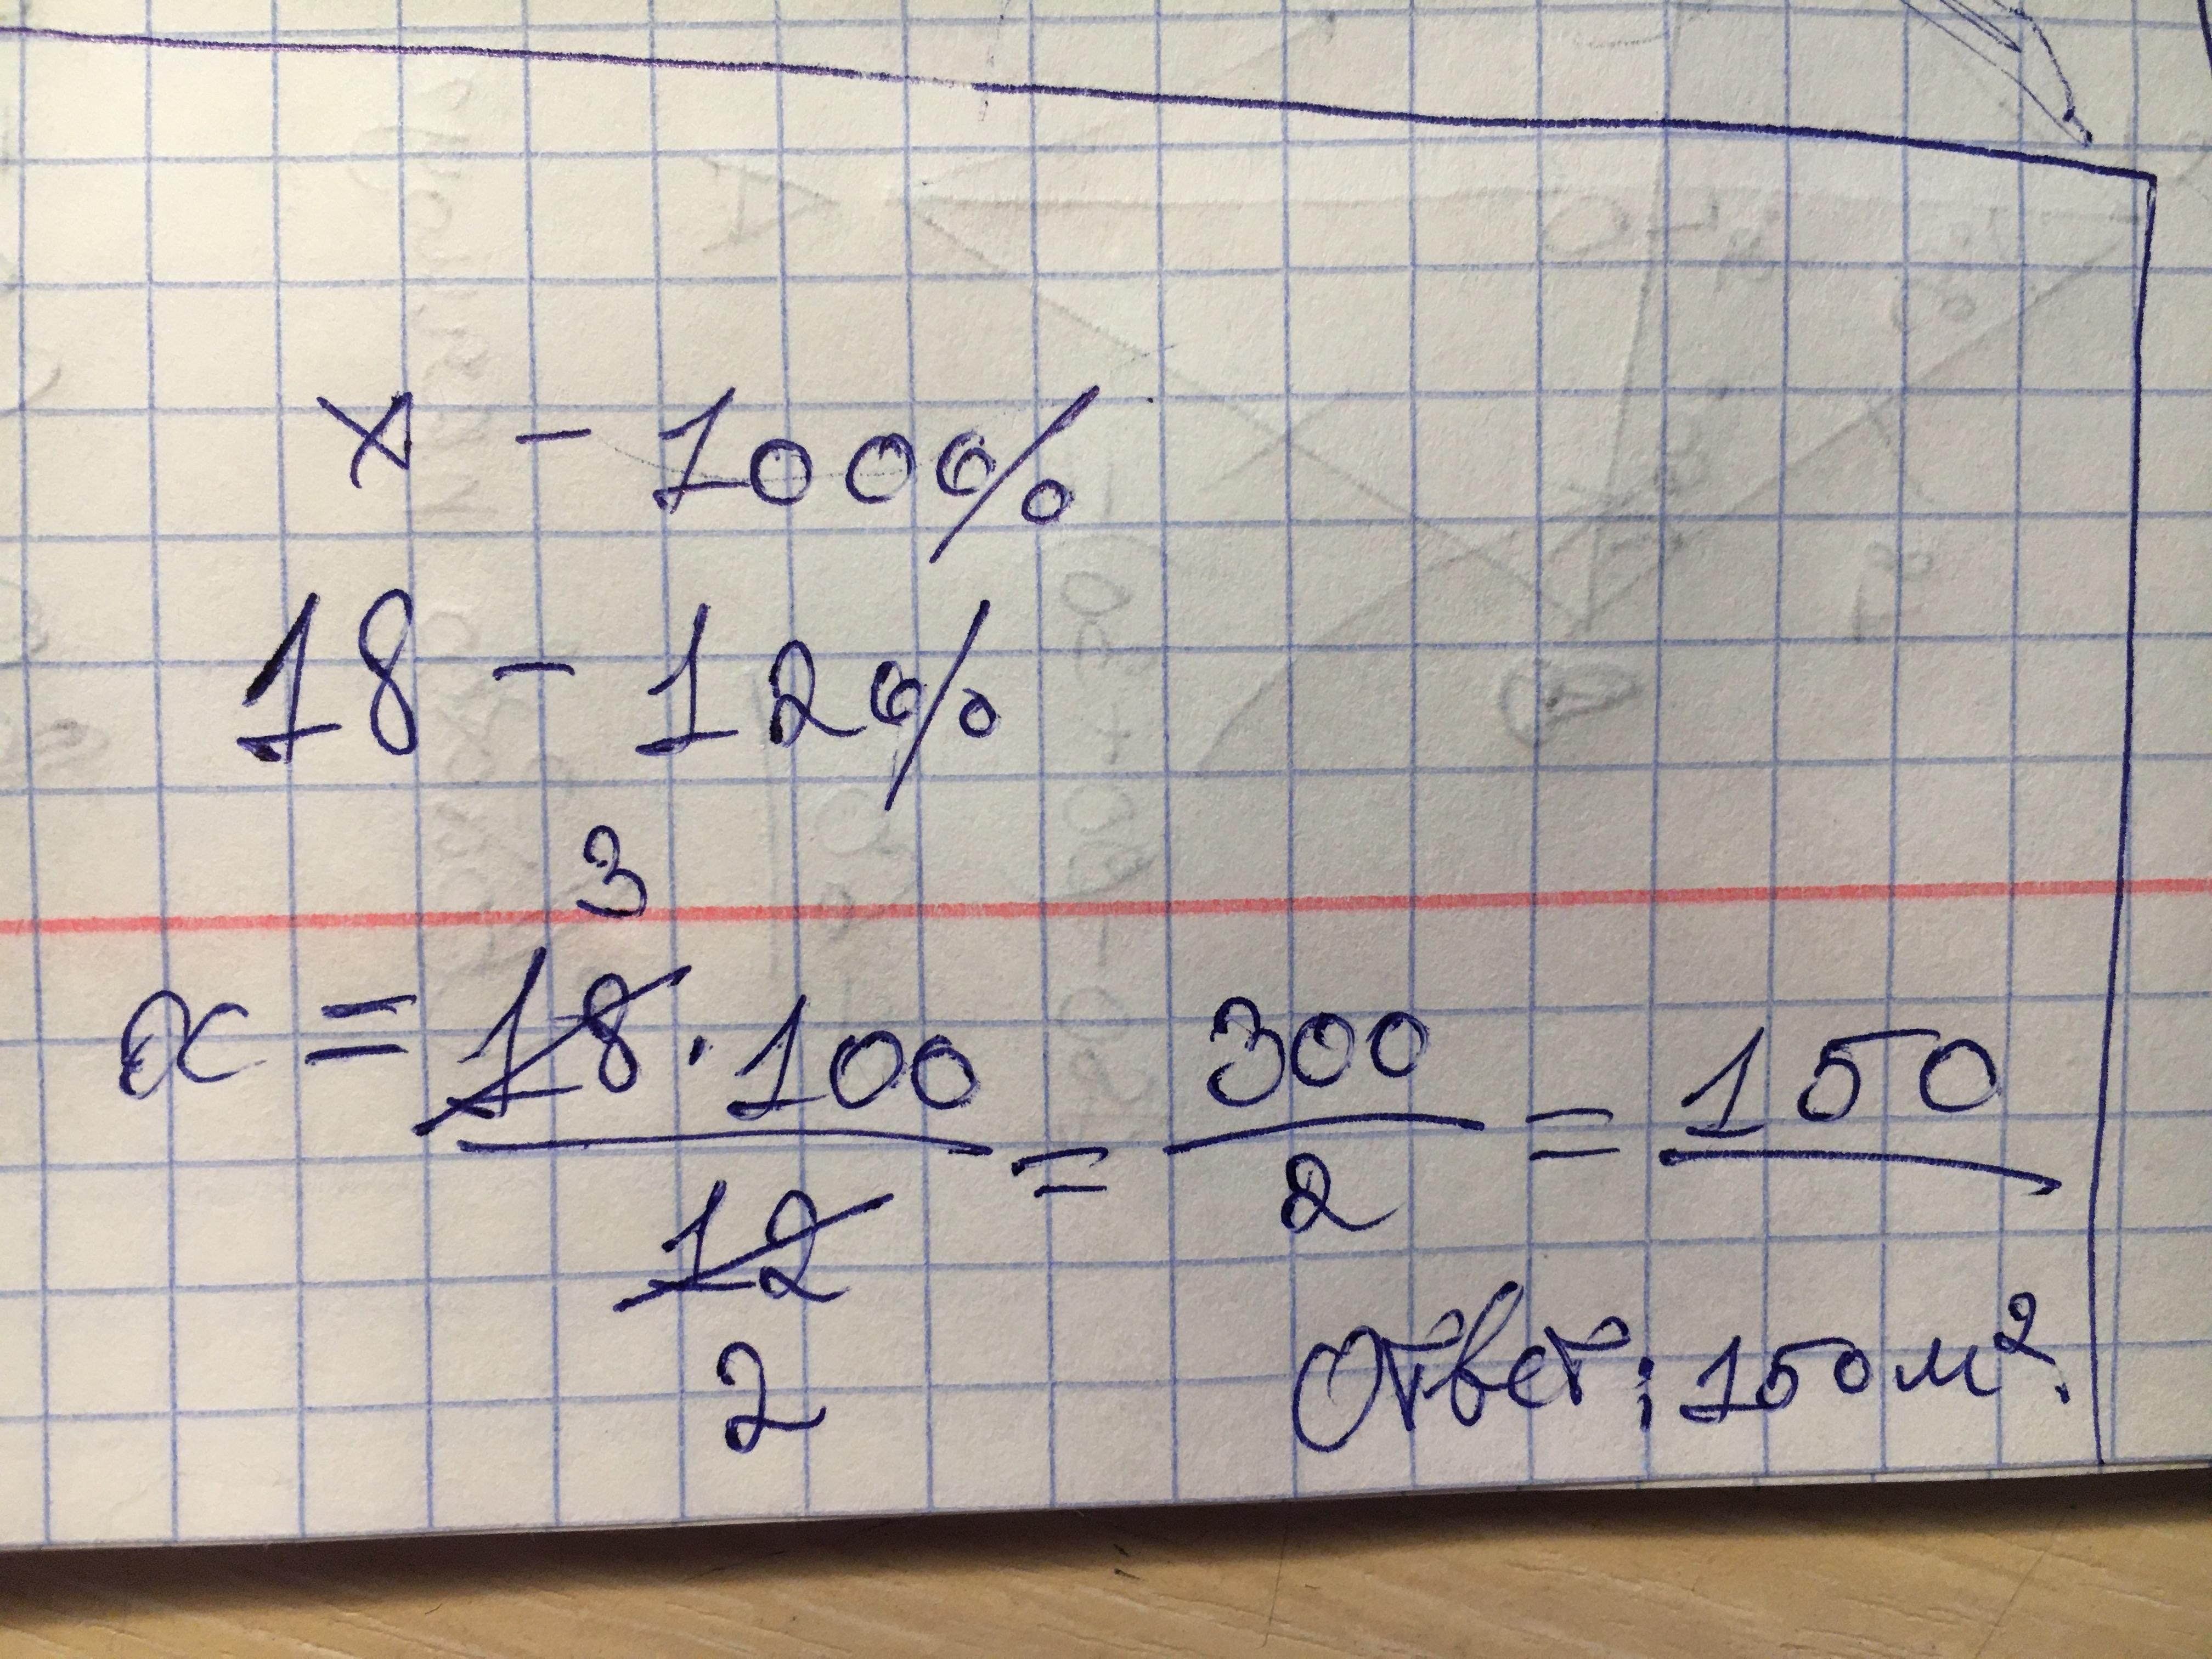 x - 100%
18 - 12%
3
x = 18 · 100 / 12 = 300 / 2 = 150
2
Ответ: 150 м².